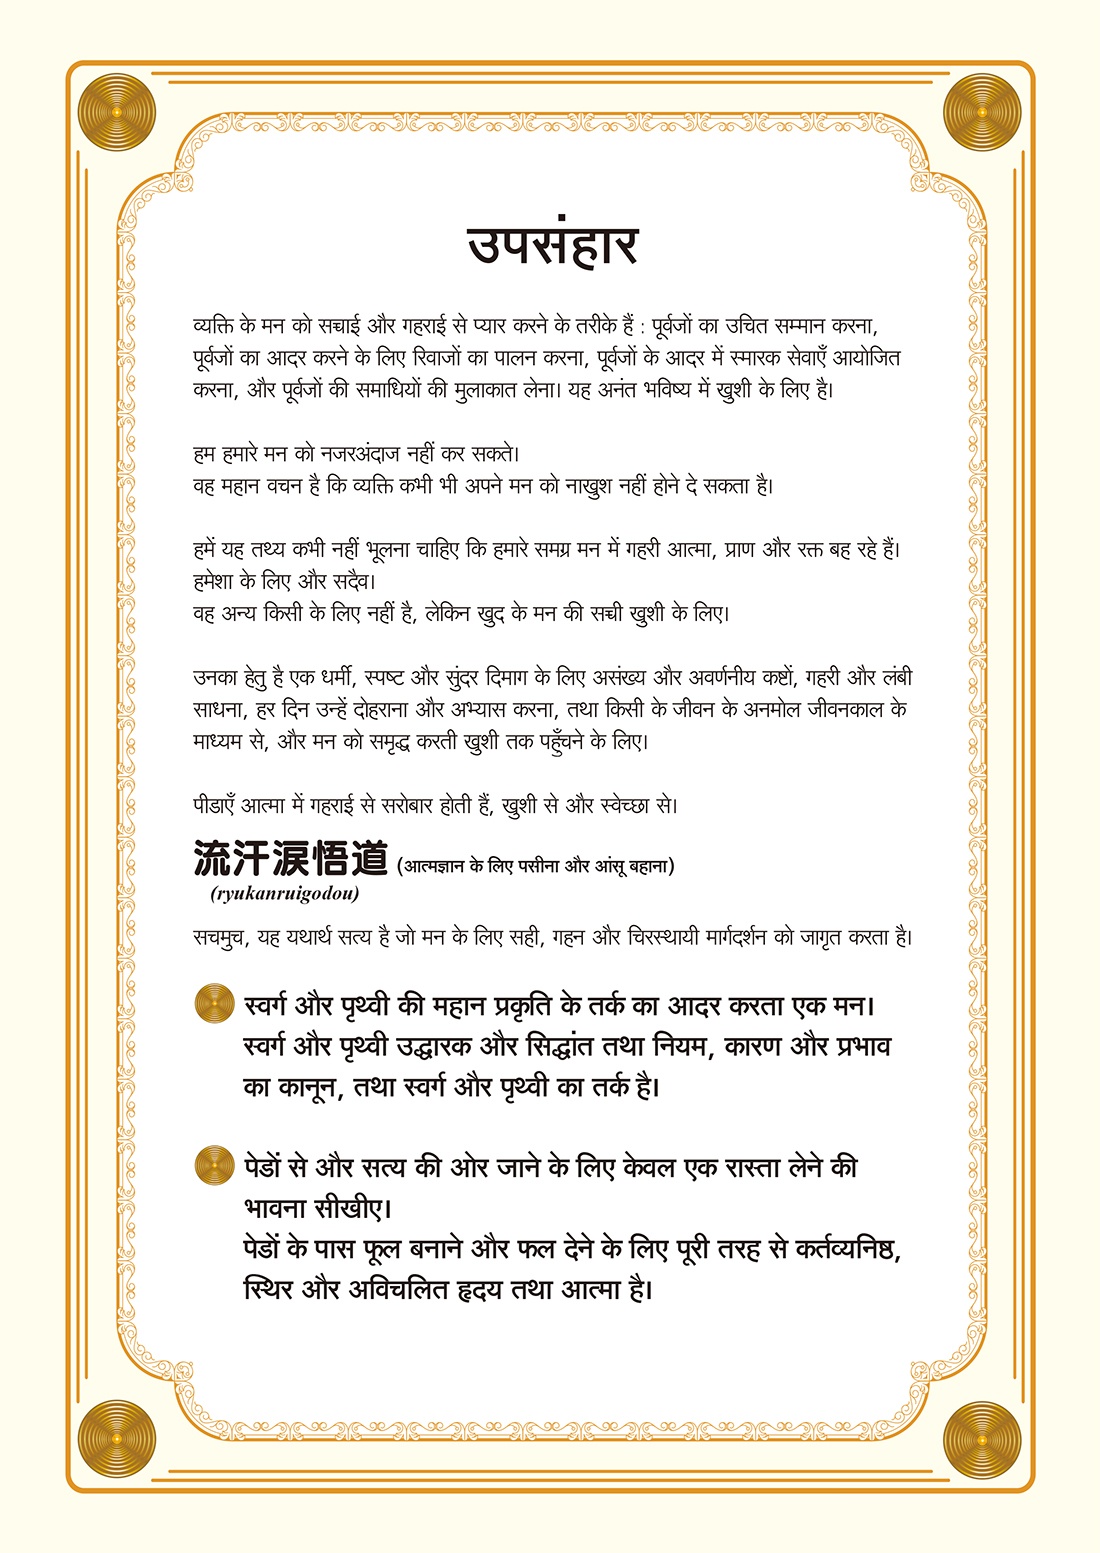 उपसंहार
व्यक्ति के मन को सच्चाई और गहराई से प्यार करने के तरीके हैं : पूर्वजों का उचित सम्मान करना,
पूर्वजों का आदर करने के लिए रिवाजों का पालन करना, पूर्वजों के आदर में स्मारक सेवाएँ आयोजित
करना, और पूर्वजों की समाधियों की मुलाकात लेना। यह अनंत भविष्य में खुशी के लिए है।
हम हमारे मन को नजरअंदाज नहीं कर सकते।
वह महान वचन है कि व्यक्ति कभी भी अपने मन को नाखुश नहीं होने दे सकता है।
हमें यह तथ्य कभी नहीं भूलना चाहिए कि हमारे समग्र मन में गहरी आत्मा, प्राण और रक्त बह रहे हैं।
हमेशा के लिए और सदैव।
वह अन्य किसी के लिए नहीं है, लेकिन खुद के मन की सच्ची खुशी के लिए।
उनका हेतु है एक धर्मी, स्पष्ट और सुंदर दिमाग के लिए असंख्य और अवर्णनीय कष्टों, गहरी और लंबी
साधना, हर दिन उन्हें दोहराना और अभ्यास करना, तथा किसी के जीवन के अनमोल जीवनकाल के
माध्यम से, और मन को समृद्ध करती खुशी तक पहुँचने के लिए।
पीडाएँ आत्मा में गहराई से सरोबार होती हैं, खुशी से और स्वेच्छा से।
流汗涙悟道 (आत्मज्ञान के लिए पसीना और आंसू बहाना)
(ryukanruigodou)
सचमुच, यह यथार्थ सत्य है जो मन के लिए सही, गहन और चिरस्थायी मार्गदर्शन को जागृत करता है।
स्वर्ग और पृथ्वी की महान प्रकृति के तर्क का आदर करता एक मन।
स्वर्ग और पृथ्वी उद्धारक और सिद्धांत तथा नियम, कारण और प्रभाव
का कानून, तथा स्वर्ग और पृथ्वी का तर्क है।
पेडों से और सत्य की ओर जाने के लिए केवल एक रास्ता लेने की
भावना सीखीए।
पेडों के पास फूल बनाने और फल देने के लिए पूरी तरह से कर्तव्यनिष्ठ,
स्थिर और अविचलित हृदय तथा आत्मा है।